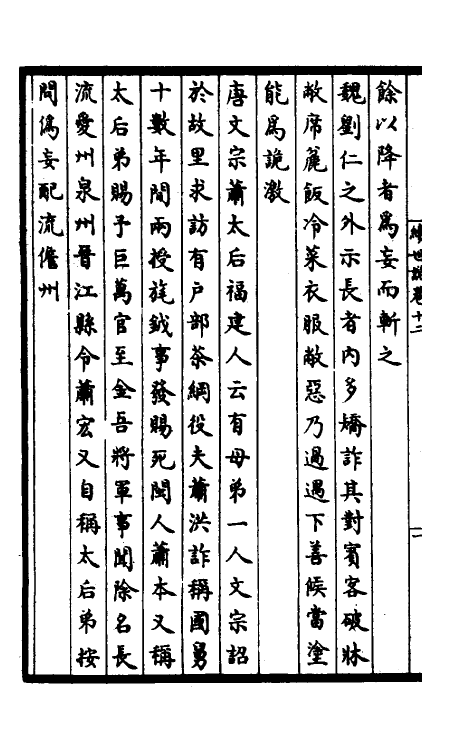 續世說卷十二
餘以降者爲妄而斬之
魏劉仁之外示長者內多矯詐其對賓客破牀
敝席麄飯冷菜衣服敝惡乃過過下善候當塗
能爲詭激
唐文宗蕭太后福建人云有母弟一人文宗詔
於故里求訪有戶部茶綱役夫蕭洪詐稱國舅
十數年間兩授旄鉞事發賜死閩人蕭本又稱
太后弟賜予巨萬官至金吾將軍事聞除名長
流愛州泉州晉江縣令蕭宏又自稱太后弟按
問僞妄配流儋州